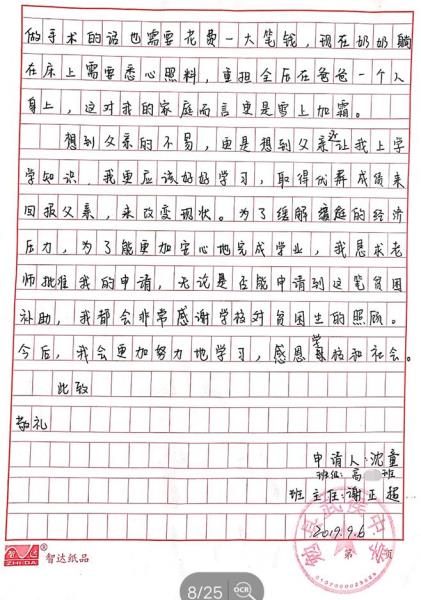 做手术的话也需要花费一大笔钱,现在奶奶躺
在床上需要悉心照料,重担全压在爸爸一个人
身上,这对我的家庭而言更是雪上加霜。
想到父亲的不易,更是想到父亲还让我上学
学知识,我更应该好好学习,取得优异成绩来
回报父亲,来改变现状。为了缓解家庭的经济
压力,为了能更加安心地完成学业,我恳求老
师批准我的申请,无论是否能申请到这笔贫困
补助,我都会非常感谢学校对贫困生的照顾。
今后,我会更加努力地学习,感恩学校和社会。
此致
敬礼
申请人:沈童
班级:高 班
班主任:谢正超
2019.9.6
智达 ZHI DA 智达纸品
第 页
8/25 OCR